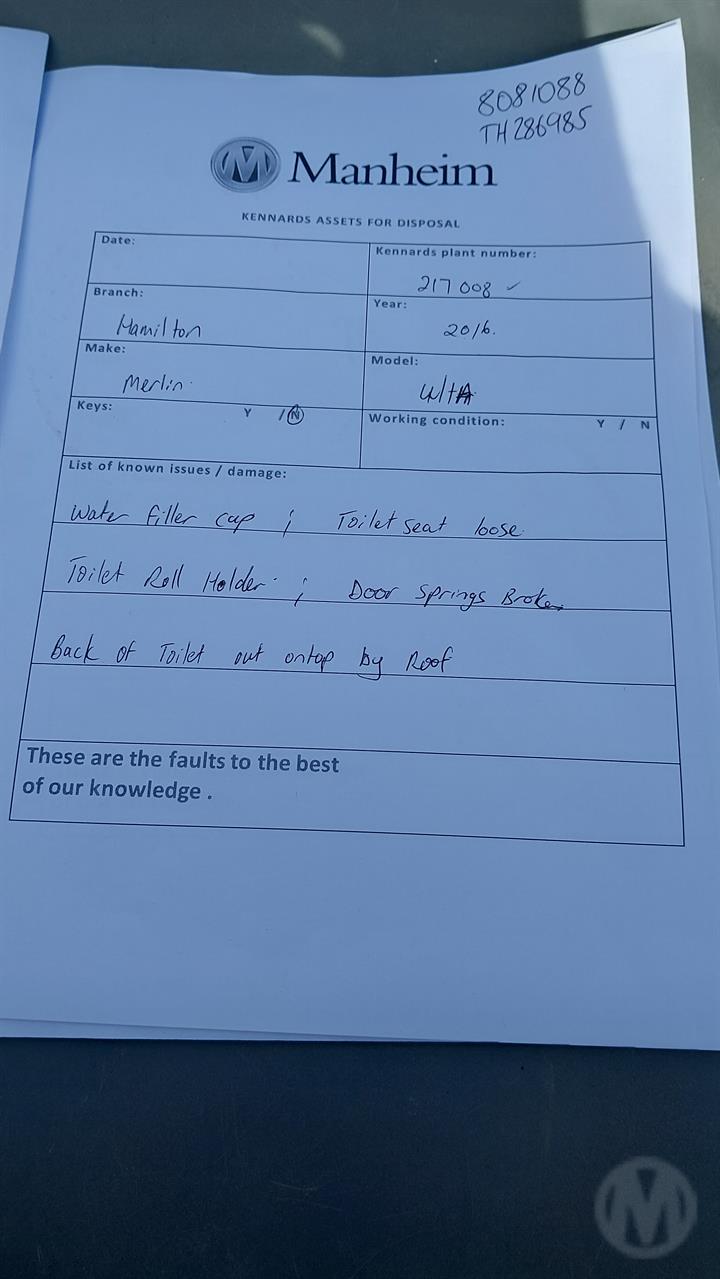 8081088
TH286985
Manheim
KENNARDS ASSETS FOR DISPOSAL
Date:
Kennards plant number:
217 008 ✓
Branch:
Hamilton
Year:
2016.
Make:
Merlin
Model:
Keys: Y / N
Working condition: Y / N
List of known issues / damage:
Water filler cap ; Toilet seat loose.
Toilet Roll Holder ; Door Springs Broken
Back of Toilet out ontop by Roof
These are the faults to the best
of our knowledge .